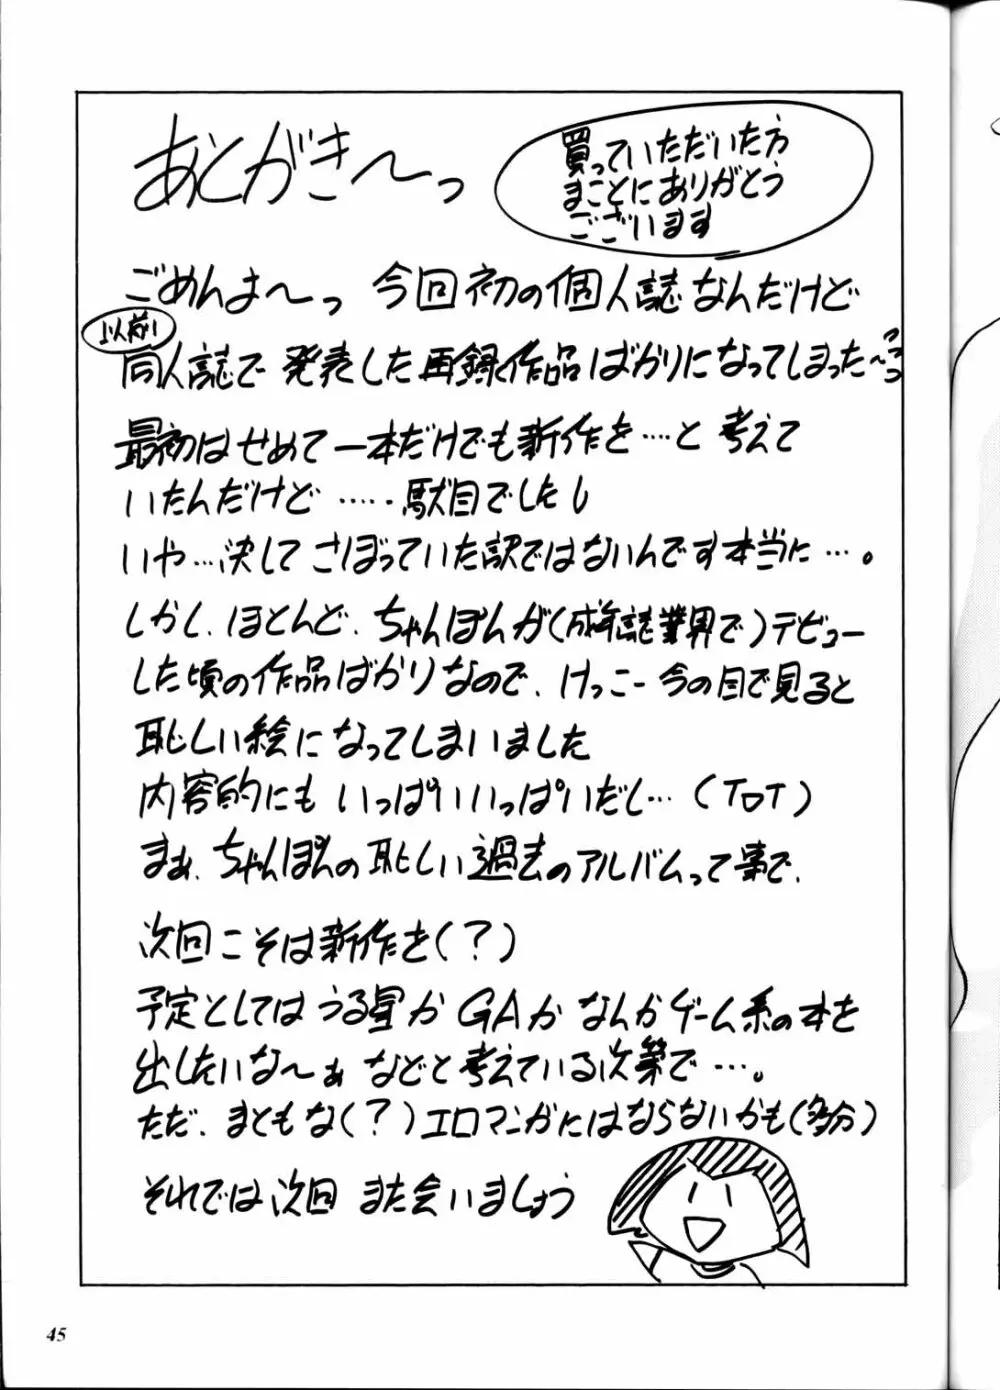 あとがき〜っ
買っていただいた方
まことにありがとう
ございます
ごめんよ〜っ 今回初の個人誌なんだけど
以前
同人誌で発表した再録作品ばかりになってしまった〜っっっ
最初はせめて一本だけでも新作を…と考えて
いたんだけど……駄目でしたし
いや…決してさぼっていた訳ではないんです本当に…。
しかし、ほとんど、ちゃんぽんが(成年誌業界で)デビュー
した頃の作品ばかりなので、けっこー今の目で見ると
恥しい絵になってしまいました
内容的にもいっぱいいっぱいだし…(TOT)
まぁ、ちゃんぽんの恥しい過去のアルバムって事で、
次回こそは新作を(?)
予定としてはうる星かGAかなんかゲーム系の本を
出したいな〜ぁなどと考えている次第で…。
ただ、まともな(?)エロマンガにはならないかも(多分)
それでは次回また会いましょう
45